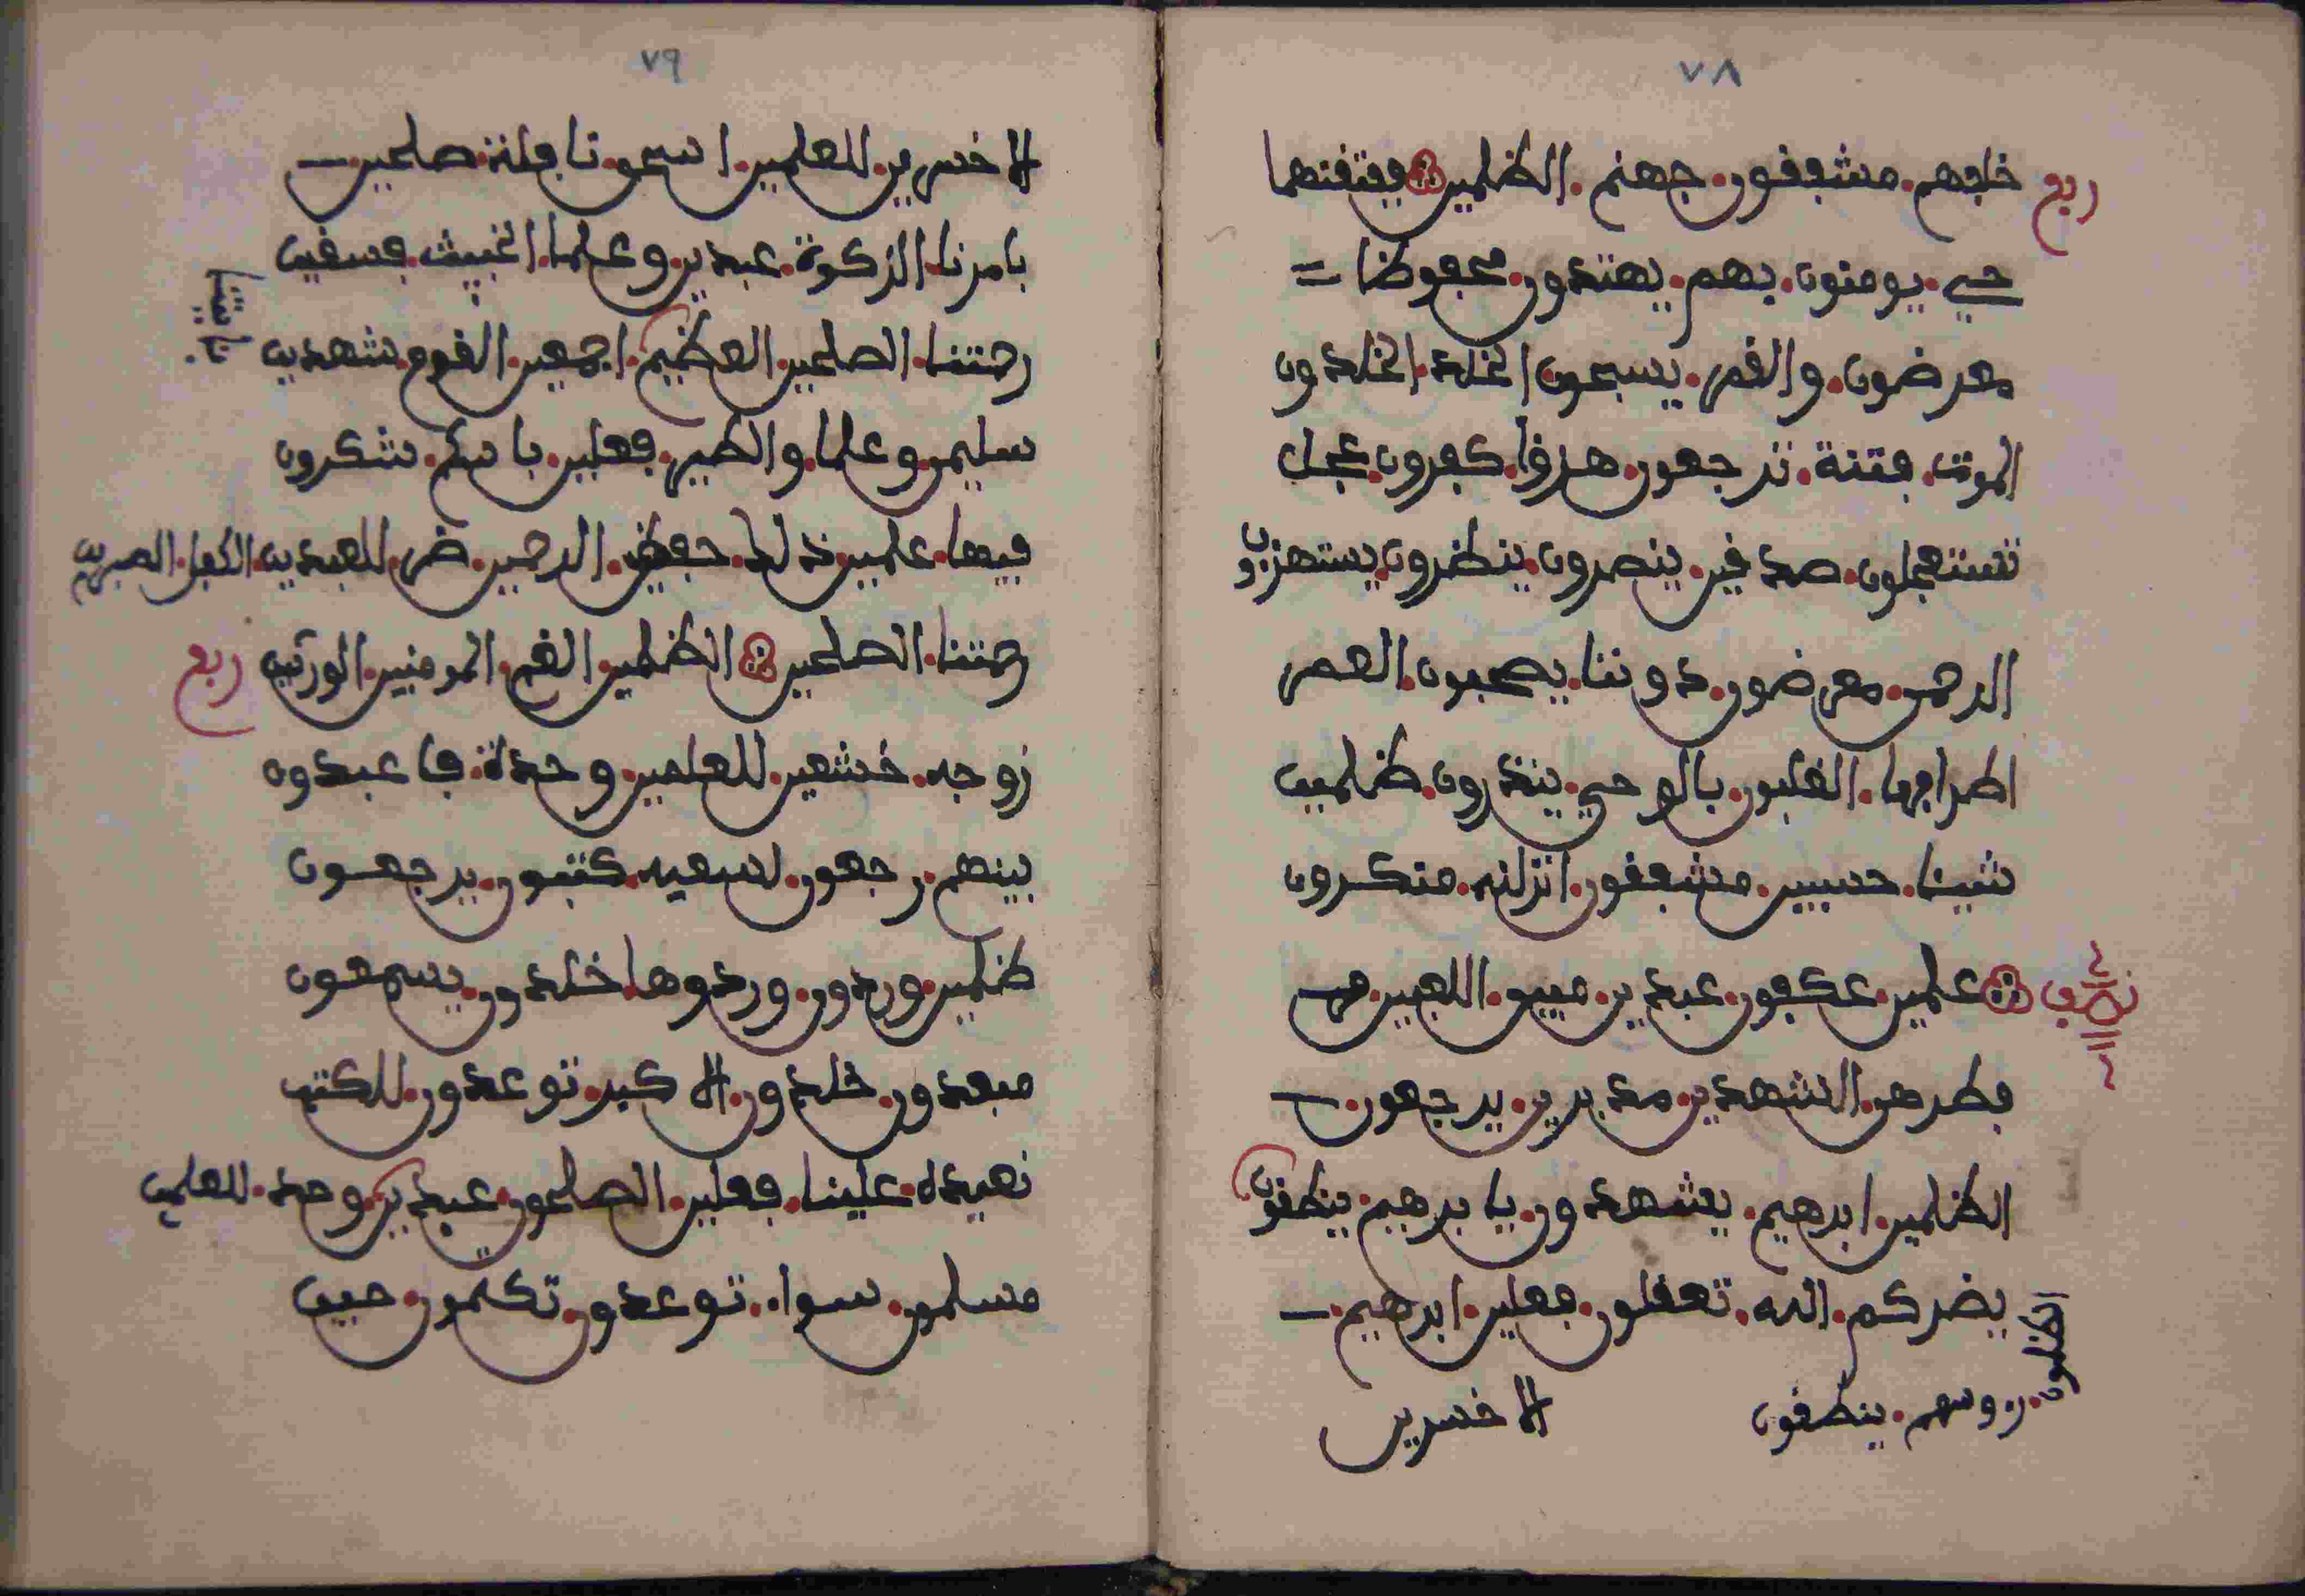 ٧٨
ربع
خلفهم. مشفقون. جهنم. الظلمين ففتقنهما
حي. يومنون. بهم. يهتدون. محفوظا
معرضون. والقمر. يسبحون. الخلد. الخلدون
الموت. فتنة. ترجعون. هزؤا. كفرون. عجل
تستعجلون. صدقين. ينصرون. ينظرون. يستهزءون
الرحمن. معرضون. دوننا. يصحبون. العمر
اطرافها. الغلبون. بالوحي. ينذرون. ظلمين
شيئا. حسبين. مشفقون. انزلنه. منكرون
نصف
علمين. عكفون. عبدين. مبين. اللعبين. هن
فطرهن. الشهدين. مدبرين. يرجعون.
الظلمين. ابرهيم. يشهدون. يابرهيم. ينطقون
يضركم. الله. تعقلون. فعلين. ابرهيم.
الظلمون. رءوسهم. ينطقون
الاخسرين
٧٩
الاخسرين. للعلمين. اسحق. نافلة. صلحين
بامرنا. الزكوة. عبدين. وعلما. الخبيث. فسقين
رحمتنا. الصلحين. العظيم. اجمعين. القوم. شهدين
بايتنا
سليمن. وعلما. والطير. فعلين. باسكم. شكرون
فيها. علمين. ذلك. حفظين. الرحمين. ضر. للعبدين. الكفل. الصبرين
رحمتنا. الصلحين الظلمين. الغم. المومنين. الورثين
ربع
زوجه. خشعين. للعلمين. وحدة. فاعبدون
بينهم. رجعون. لسعيه. كتبون. يرجعون
ظلمين. وردون. وردوها. خلدون. يسمعون
مبعدون. خلدون. الاكبر. توعدون. للكتب
نعيده. علينا. فعلين. الصلحون. عبدين. وحد. للعلمين
مسلمون. سواء. توعدون. تكتمون. حين